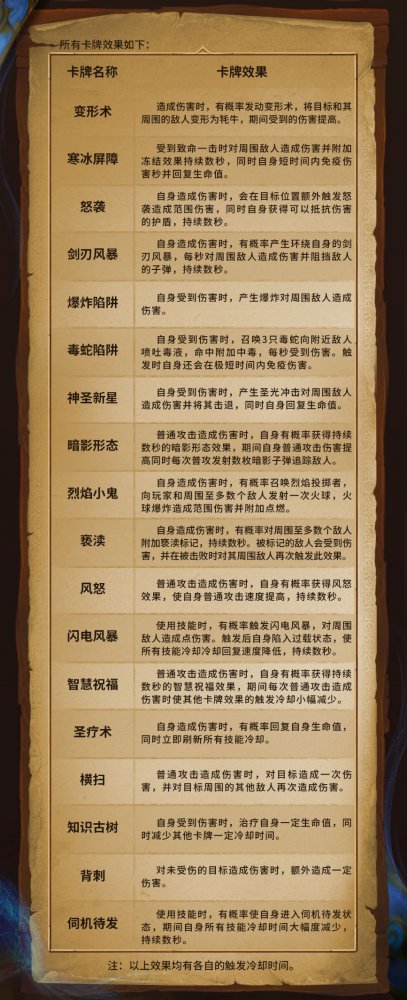 所有卡牌效果如下：
卡牌名称 卡牌效果
变形术
造成伤害时，有概率发动变形术，将目标和其
周围的敌人变形为牦牛，期间受到的伤害提高。
寒冰屏障
受到致命一击时对周围敌人造成伤害并附加
冻结效果持续数秒，同时自身短时间内免疫伤
害秒并回复生命值。
怒袭
自身造成伤害时，会在目标位置额外触发怒
袭造成范围伤害，同时自身获得可以抵抗伤害
的护盾，持续数秒。
剑刃风暴
自身造成伤害时，有概率产生环绕自身的剑
刃风暴，每秒对周围敌人造成伤害并阻挡敌人
的子弹，持续数秒。
爆炸陷阱
自身受到伤害时，产生爆炸对周围敌人造成
伤害。
毒蛇陷阱
自身受到伤害时，召唤3只毒蛇向附近敌人
喷吐毒液，命中附加中毒，每秒受到伤害。触
发时自身还会在极短时间内免疫伤害。
神圣新星
自身受到伤害时，产生圣光冲击对周围敌人
造成伤害并将其击退，同时自身回复生命值。
暗影形态
普通攻击造成伤害时，自身有概率获得持续
数秒的暗影形态效果，期间自身普通攻击伤害提
高同时每次普攻发射数枚暗影子弹追踪敌人。
烈焰小鬼
自身造成伤害时，有概率召唤烈焰投掷者，
向玩家和周围至多数个敌人发射一次火球，火
球爆炸造成范围伤害并附加点燃。
亵渎
自身造成伤害时，有概率对周围至多数个敌人
附加亵渎标记，持续数秒。被标记的敌人会受到伤
害，并在被击败时对其周围敌人再次触发此效果。
风怒
普通攻击造成伤害时，自身有概率获得风怒
效果，使自身普通攻击速度提高，持续数秒。
闪电风暴
使用技能时，有概率触发闪电风暴，对周围
敌人造成点伤害。触发后自身陷入过载状态，使
所有技能冷却冷却回复速度降低，持续数秒。
智慧祝福
普通攻击造成伤害时，自身有概率获得持续
数秒的智慧祝福效果，期间每次普通攻击造成
伤害时使其他卡牌效果的触发冷却小幅减少。
圣疗术
自身造成伤害时，有概率回复自身生命值，
同时立即刷新所有技能冷却。
横扫
普通攻击造成伤害时，对目标造成一次伤
害，并对目标周围的其他敌人再次造成伤害。
知识古树
自身受到伤害时，治疗自身一定生命值，同
时减少其他卡牌一定冷却时间。
背刺
对未受伤的目标造成伤害时，额外造成一定
伤害。
伺机待发
使用技能时，有概率使自身进入伺机待发状
态，期间自身所有技能冷却时间大幅度减少，
持续数秒。
注：以上效果均有各自的触发冷却时间。